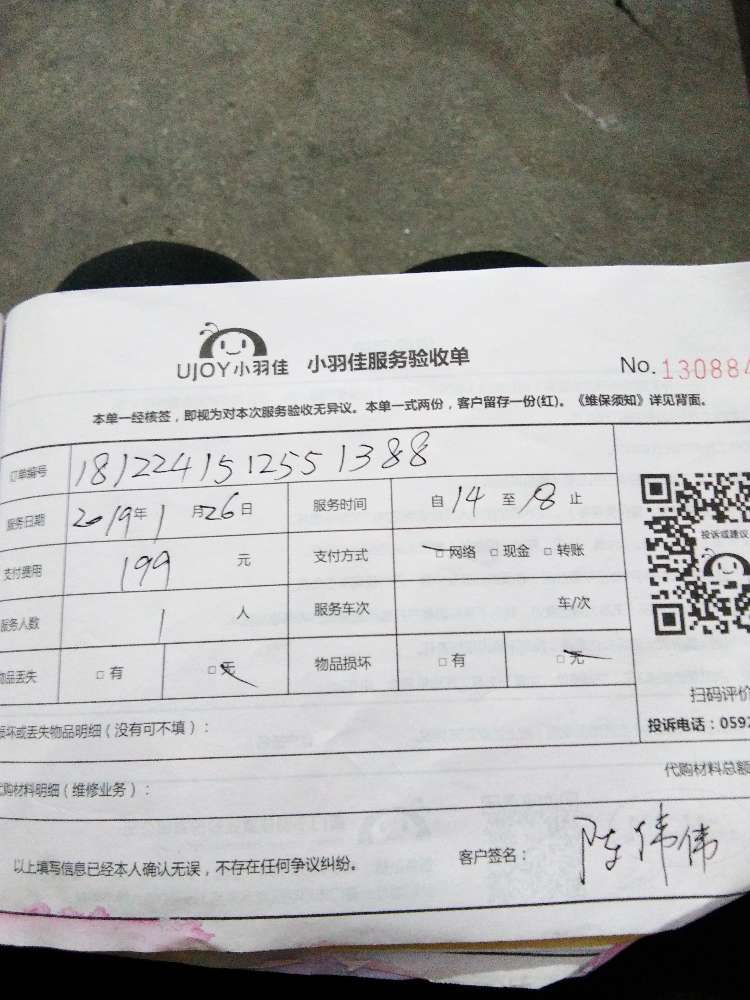 UJOY小羽佳 小羽佳服务验收单 No. 130884
本单一经核签，即视为对本次服务验收无异议。本单一式两份，客户留存一份(红)。《维保须知》详见背面。
订单编号 181224151255 1388
服务日期 2019年1月26日 服务时间 自14至18止
支付费用 199 元 支付方式 □网络 □现金 □转账
投诉或建议
服务人数 1 人 服务车次 车/次
物品丢失 □有 □无 物品损坏 □有 □无
扫码评价
损坏或丢失物品明细（没有可不填）：
投诉电话：0592
代购材料明细（维修业务）：
代购材料总额
以上填写信息已经本人确认无误，不存在任何争议纠纷。 客户签名： 陈伟伟